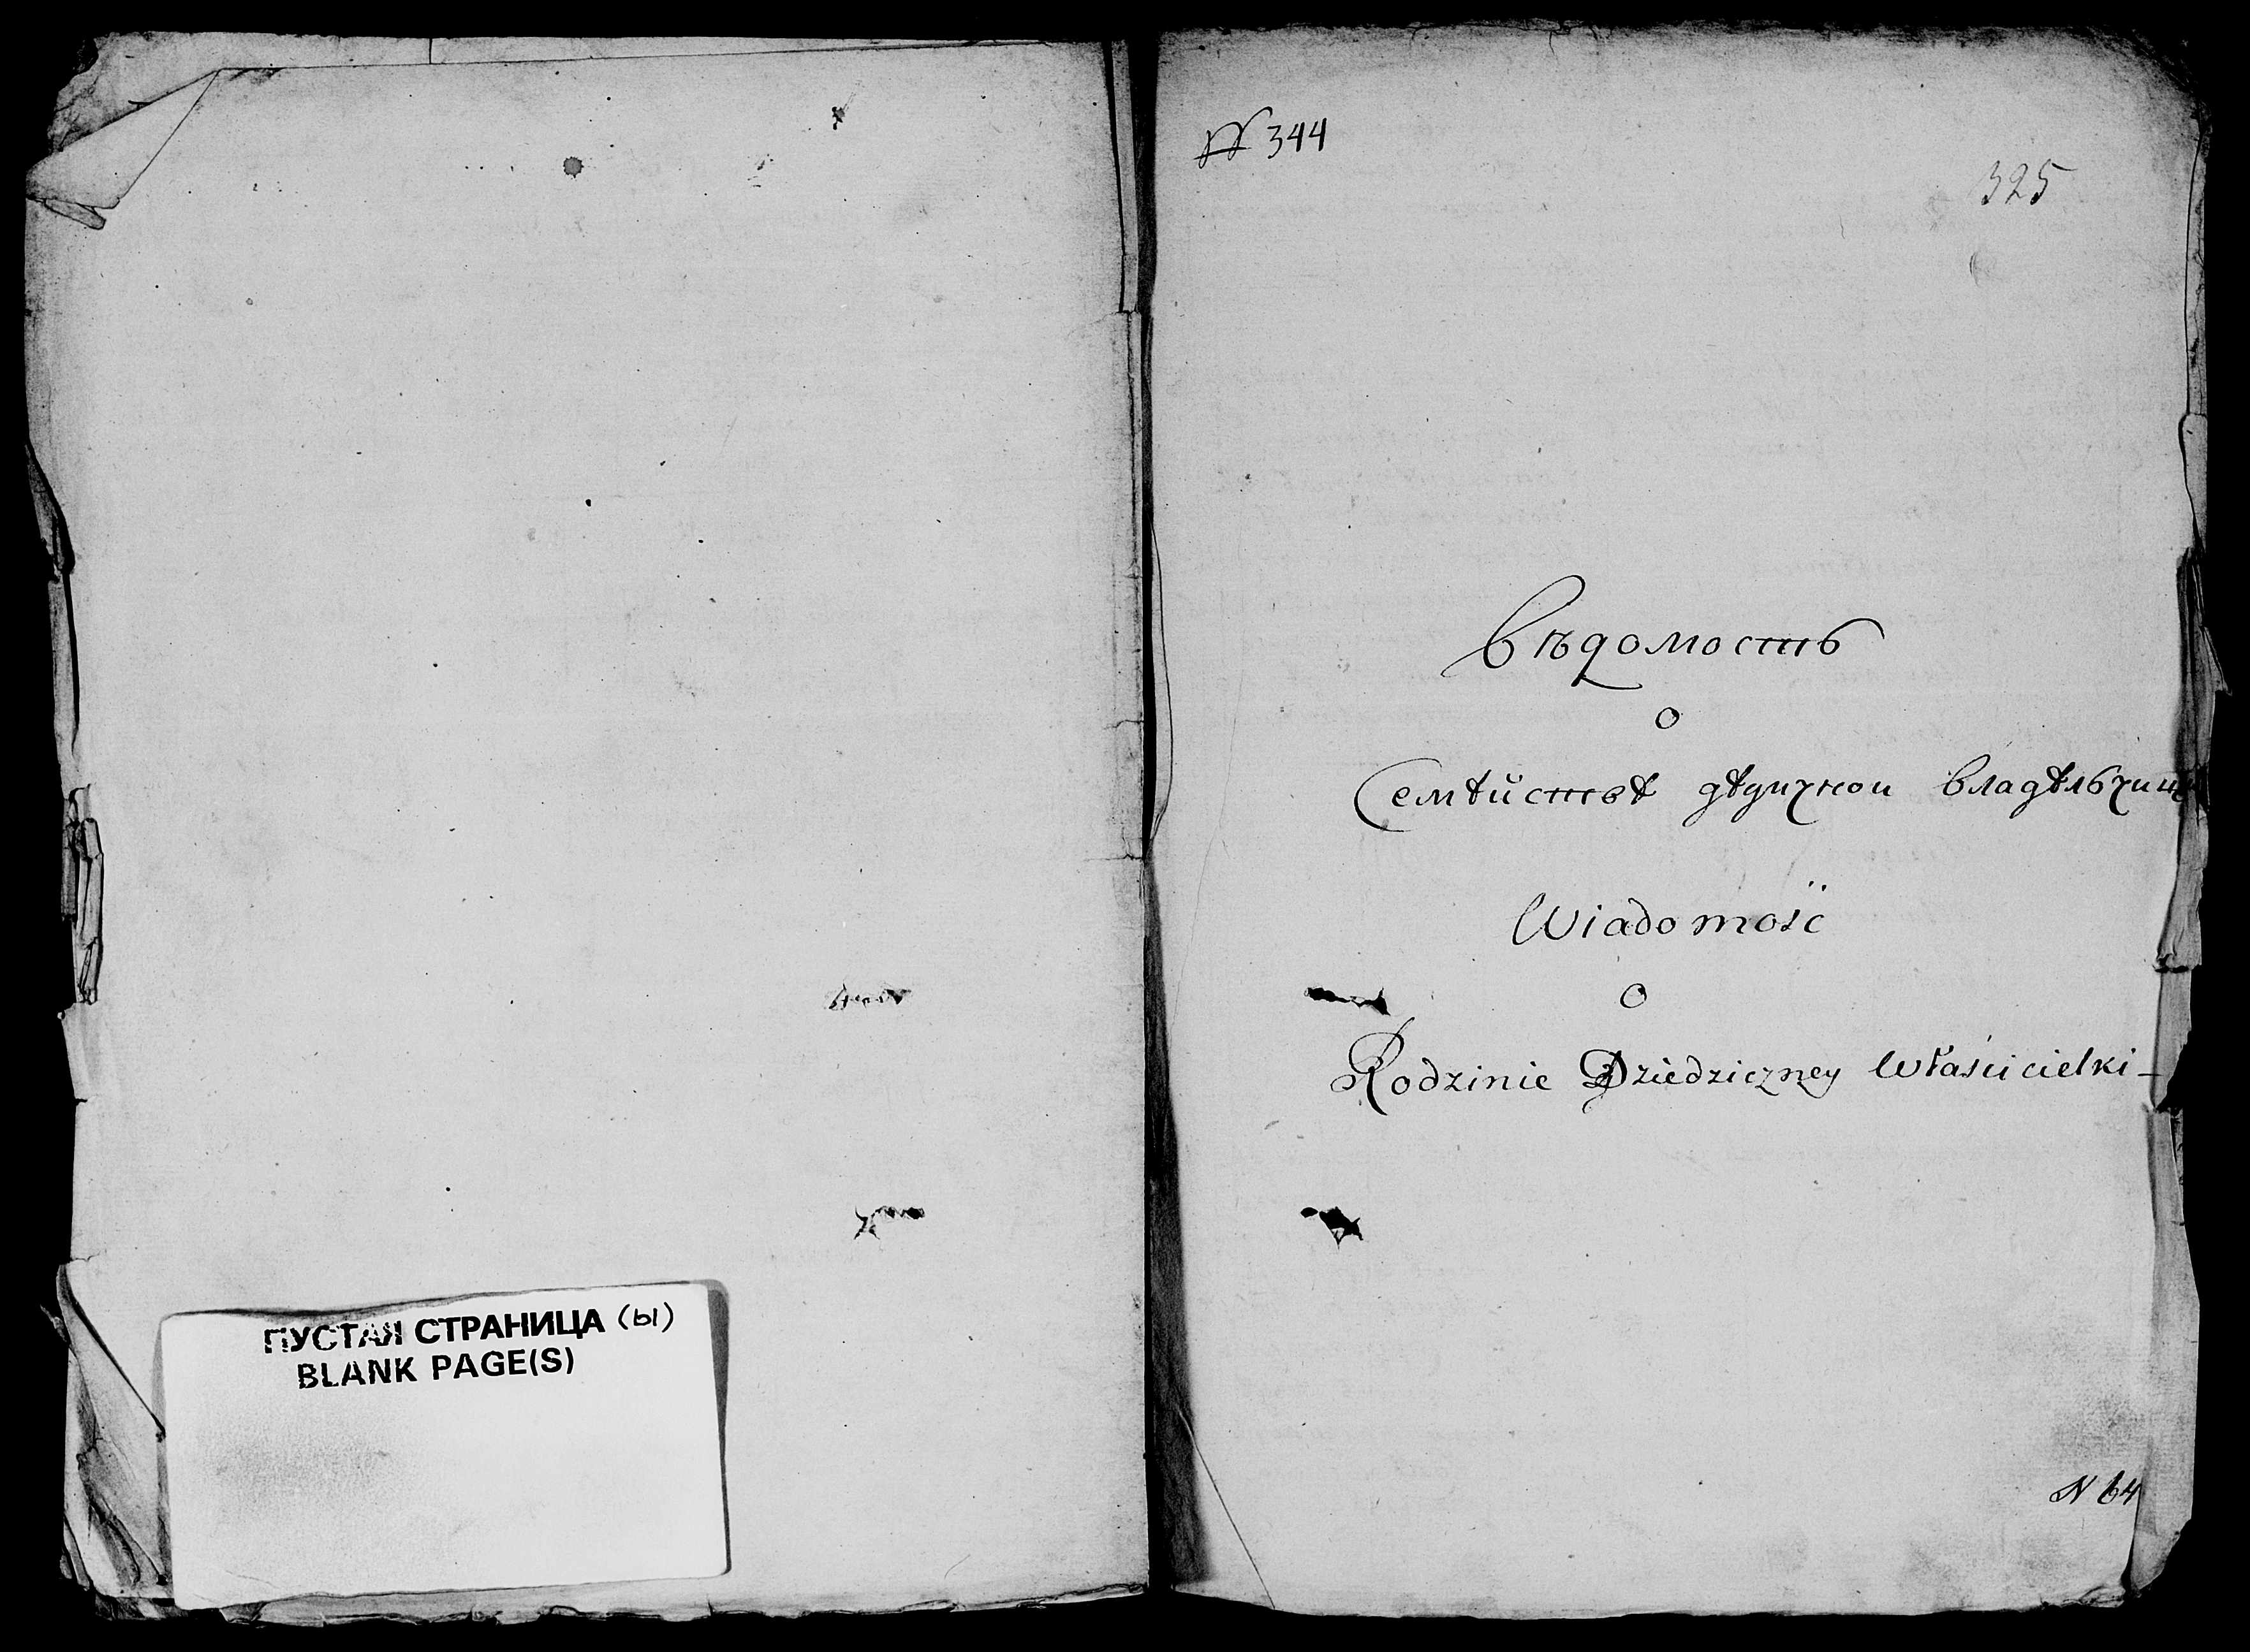 ПУСТАЯ СТРАНИЦА (ы)
BLANK PAGE(S)
№ 344
325
Вѣдомость
о
Семѣйствѣ дѣдичнои владѣльчицы
Wiadomość
O
Rodzinie Dziedziczney Właścicielki
N 64